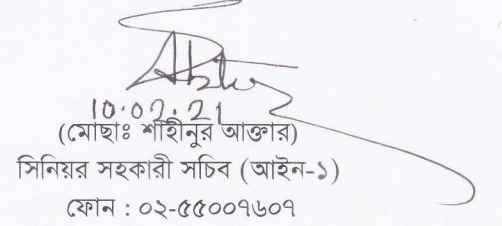 10.02.21
(মোছাঃ শাহীনুর আক্তার)
সিনিয়র সহকারী সচিব (আইন-১)
ফোন : ০২-৫৫০০৭৬০৭